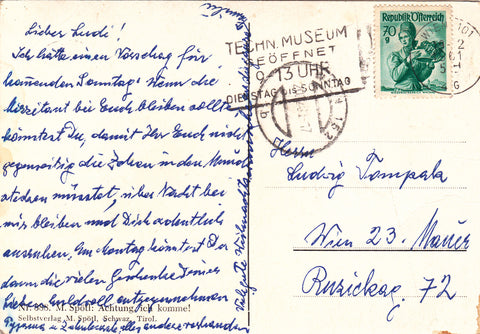 Lieber Ludi!
Ich hätte einen Vorschlag für
kommenden Sonntag: Wenn die
bei Euch bleiben sollte
könntest Du, damit Ihr Euch nicht
gegenseitig die Zehen in den Mund
stecken müsstet, über Nacht bei
mir bleiben und Dich ordentlich
ausruhen. Am Montag könntest Du
dann die vielen Geschenke Deiner
Lieben huldvoll entgegennehmen
Pyjama u. Zahnbürste, alles andere vorhanden
Nr. M. Spötl: Achtung, ich komme!
Selbstverlag M. Spötl, Schwaz, Tirol.
TECHN. MUSEUM
GEÖFFNET
9-13 UHR
DIENSTAG bis SONNTAG
152
101
Republik Österreich
70
g
Herrn
Ludwig Tompala
Wien 23. Mauer
Ruzickag. 72